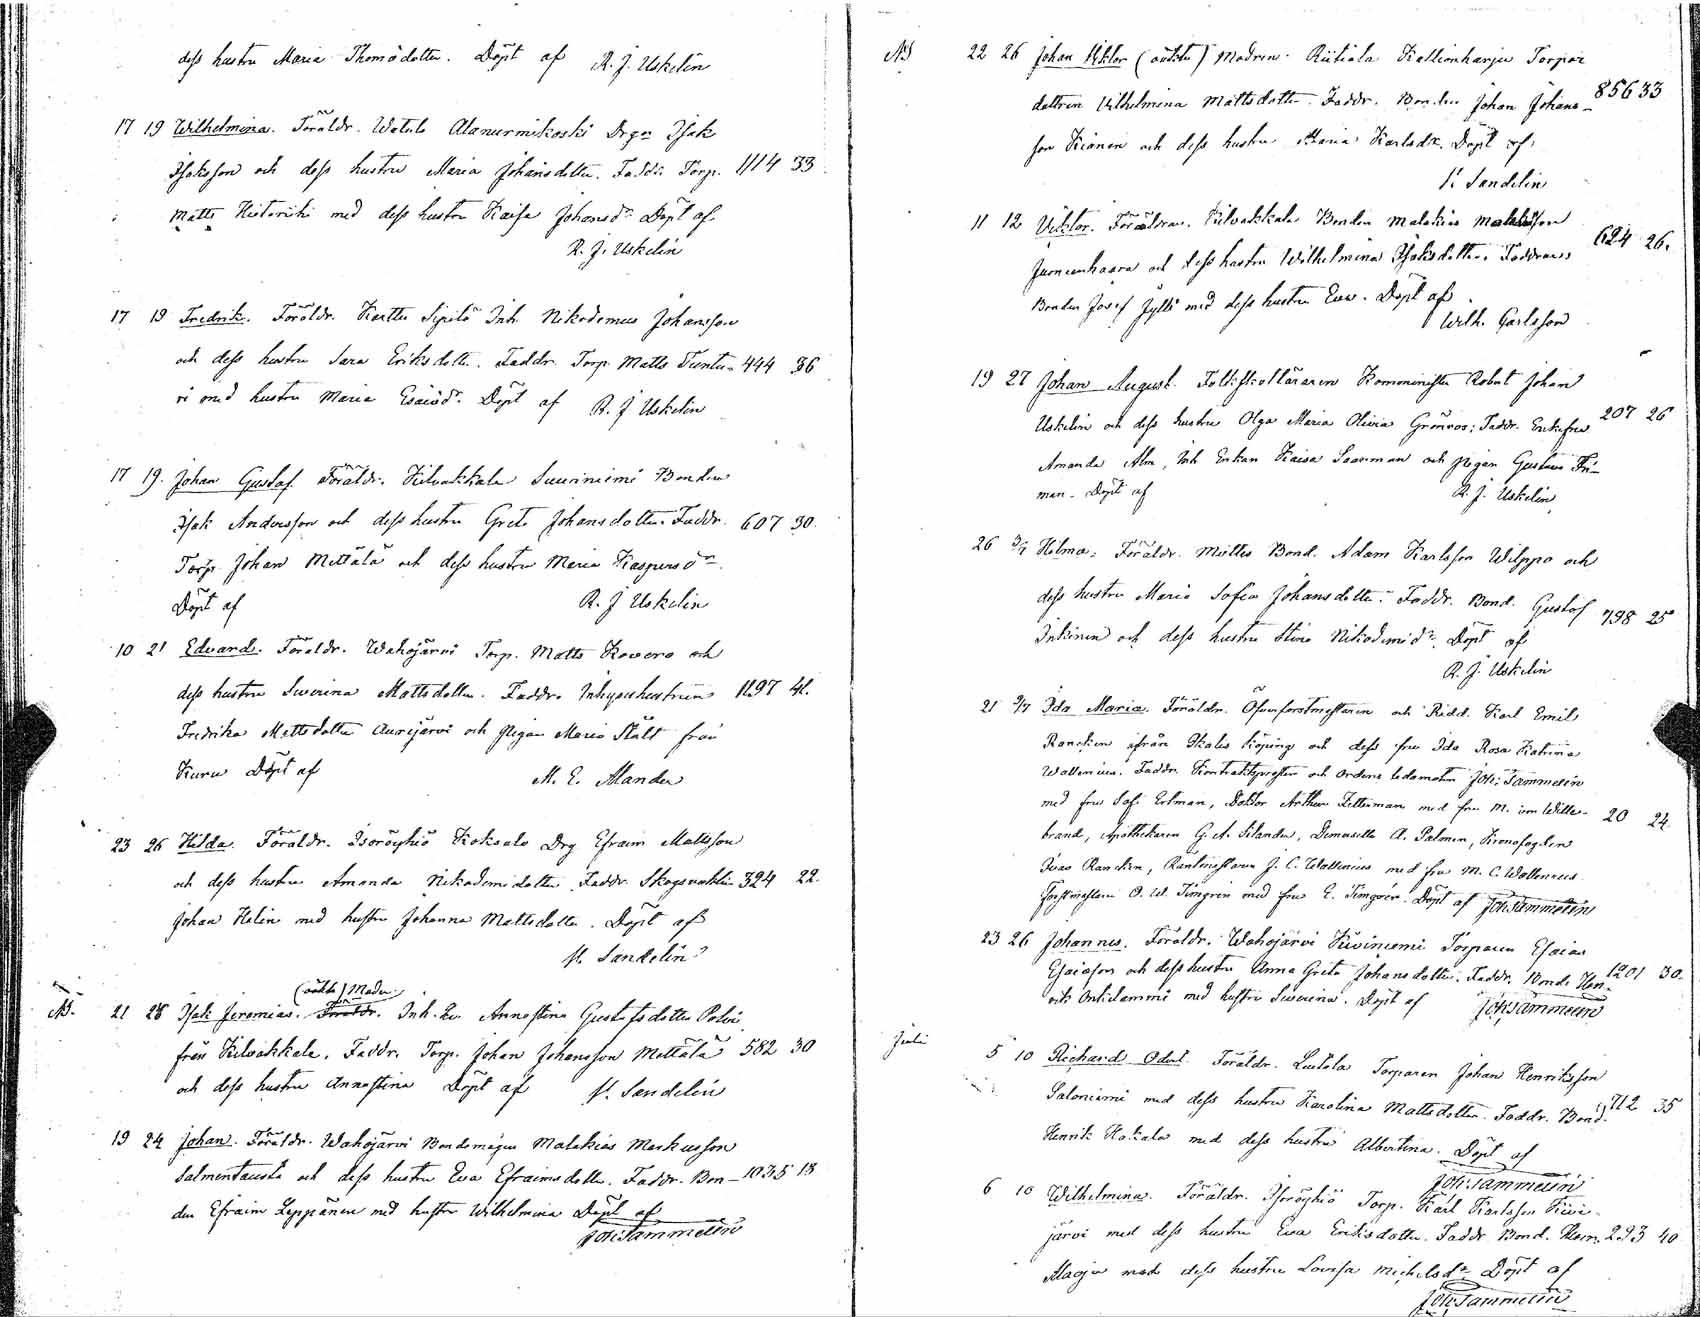 dess hustru Maria Thomsdotter. Döpt af R. J. Uskelin
17 19 Wilhelmina. Föräldr. Watula Alanurmikoski Drgn Isak
Isaksson och dess hustru Maria Johansdotter. Faddr. Torp. 1114 33
Matts Hietoriki med dess hustru Kaisa Johansdr Döpt af
R. J. Uskelin
17 19 Fredrik. Föräldr. Kartti Sipilä Inh. Nikodemus Johansson
och dess hustru Sara Eriksdotter. Faddr. Torp. Matts Tuntu- 444 36
ri med hustru Maria Esaiedr. Döpt af R. J Uskelin
17 19. Johan Gustaf. Föräldr. Kilvakkala Suuriniemi Bonden
Isak Andersson och dess hustru Greta Johansdotter. Faddr. 607 30.
Torp. Johan Mettälä och dess hustru Maria Kaspersdr.
Döpt af R. J Uskelin
10 21 Edvard. Föräldr. Wahojärvi Torp. Matts Kovero och
dess hustru Severina Mattsdotter. Faddr. Inhyseshustrun 1197 41.
Fredrika Mattsdotter Aurejärvi och pigan Maria Stält från
Kuru Döpt af M. E. Mander
23 26 Hilda. Föräldr. Isoröyhiö Koksalo Drg Efraim Mattsson
och dess hustru Amanda Nikodemidotter. Faddr. Skogsvaktn 324 22.
Johan Helin med hustru Johanna Mattsdotter. Döpt af
Sandelin
NB. 21 28 Isak Jeremias. (oäkta) Modr. Föräldr. Inh. Annastina Gustafsdotter Polvi
från Kilvakkala. Faddr. Torp. Johan Johansson Mettälä 582 30
och dess hustru Annastina Döpt af Sandelin
19 24 Johan. Föräldr. Wahojärvi Bondemågen Malakias Markusson
Salmentausta och dess hustru Eva Efraimsdotter. Faddr. Bon- 1035 18
den Efraim Leppänen med hustru Wilhelmina Döpt af
Joh: Tammelin
NB 22 26 Johan Viktor (oäkta) Modren Riitiala Kallionharju Torpar
dottren Wilhelmina Mattsdotter. Faddr. Bonden Johan Johans- 856 33
son Kianen och dess hustru Maria Karlsdr. Döpt af
Sandelin
11 12 Viktor. Föräldrar. Kilvakkala Bonden Malakias Malakiasson
Jumienhaara och dess hustru Wilhelmina Isaksdotter. Faddrar 624 26.
Bonden Josef Jylli med dess hustru Eva. Döpt af
Wilh. Carlsson
19 27 Johan August. Folkskolläraren Komminister Robert Johan
Uskelin och dess hustru Olga Maria Olivia Grönroos: Faddr. Enkefru 207 26
Amanda Alm, Inh. Enkan Kaisa Saarman och pigan Gustava Fri-
man. Döpt af R. J. Uskelin
26 3/7 Helma. Föräldr. Miettis Bond. Adam Karlsson Wilppo och
dess hustru Maria Sofia Johansdotter. Faddr. Bond. Gustaf 798 25
Inkinen och dess hustru Stina Nikodemidr. Döpt af
R. J. Uskelin
21 9/7 Ida Maria. Föräldr. Öfverforstmestaren och Ridd. Karl Emil
Rancken ifrån Ikalis köping och dess fru Ida Rosa Katrina
Wallenius. Faddr. Kontraktsprosten och Ordens ledamoten Joh: Tammelin
med fru Sofi Ertman, Doktor Arthur Zetterman med fru M. von Wille- 20 24
brand, Apothekaren G. A. Silander, Demoiselle A. Palmen, Kronofogden
Ivar Rancken, Räntmästaren J. C. Wallenius med fru M. C. Wallenius
Forstmestaren O. W. Timgren med fru E. Timgrén. Döpt af Joh: Tammelin
23 26 Johannes. Föräldr. Wahojärvi Kiviniemi Torparen Esaias
Esaiasson och dess hustru Anna Greta Johansdotter. Faddr. Bond. Hen- 1201 30.
rik Onkilammi med hustru Severina. Döpt af Joh: Tammelin
Juli
5 10 Richard Odert. Föräldr. Luotola Torparen Johan Henriksson
Saloniemi med dess hustru Karolina Mattsdotter. Faddr. Bond. 712 35
Henrik Hakala med dess hustru Albertina. Döpt af
Joh: Tammelin
6 10 Wilhelmina. Föräldr. Isoröyhiö Torp. Karl Karlsson Kivi-
järvi med dess hustru Eva Eriksdotter. Faddr. Bond. Herm. 293 40
Alaoja med dess hustru Lovisa Michelsdr Döpt af
Joh: Tammelin